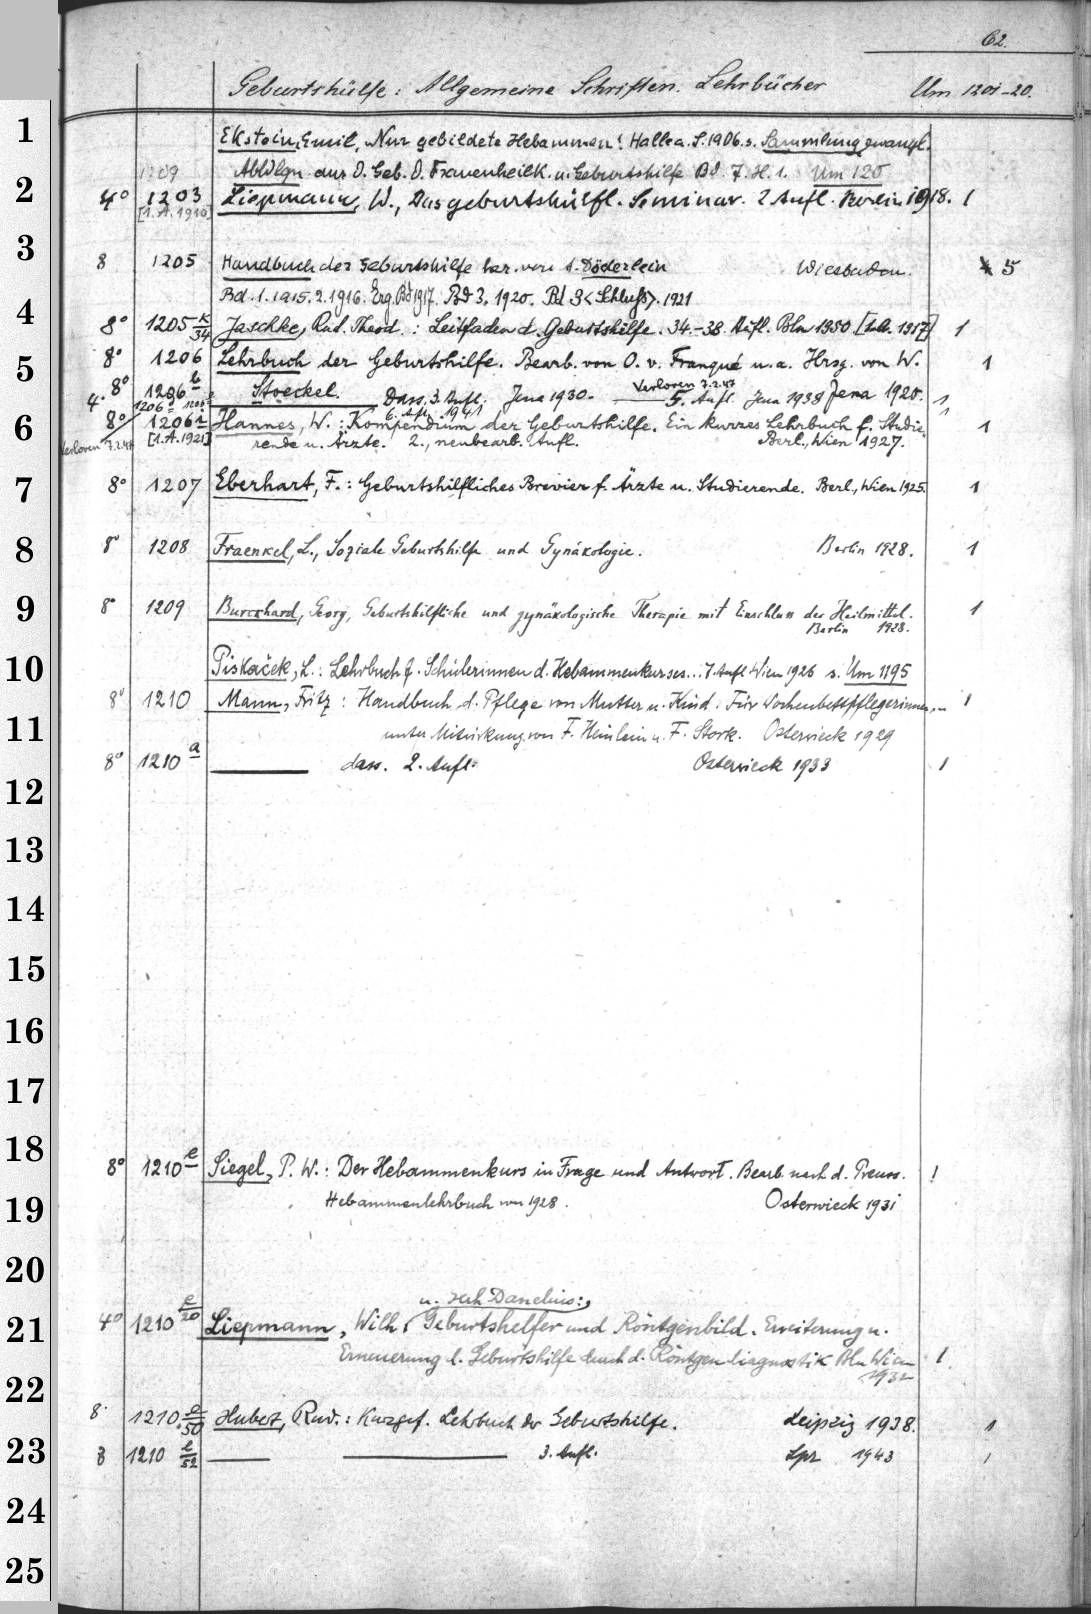 62.
Geburtshülfe: Allgemeine Schriften. Lehrbücher Um 1201-20.
1 Ekstein, Emil, Nur gebildete Hebammen! Halle a. S. 1906. s. Sammlung zwangl.
1209 Abhdlgn aus d. Geb. d. Frauenheilk. u. Geburtshilfe Bd. 7. H. 1. Um 120
2 4° 1203 Liepmann, W., Das geburtshülfl. Seminar. 2 Aufl. Berlin 1918. 1
[1.A.1910]
3 8 1205 Handbuch der Geburtshilfe hsr. von A. Döderlein Wiesbaden. 5
Bd. 1. 1915. 2. 1916. Erg. Bd 1917. Bd 3. 1920. Bd 3 <Schluß>. 1921
4 8° 1205 K/34 Jaschke, Rud. Theod.: Leitfaden d. Geburtshilfe. 34.-38. Aufl. Bln 1950 [1.A. 1917] 1
5 8° 1206 Lehrbuch der Geburtshilfe. Bearb. von O. v. Franqué u. a. Hrsg. von W. 1
8° 1206 b Stoeckel. Jena 1920.
4° Dass. 3. Aufl. Jena 1930. Verloren 7.2.47 5. Aufl. Jena 1938 1
6. Afl. 1941 1
6 8° 1206 [1.A.1921] Hannes, W.: Kompendium der Geburtshilfe. Ein kurzes Lehrbuch f. Studie- 1
Verloren 7.2.47 rende u. Ärzte. 2., neubearb. Aufl. Berl., Wien 1927.
7 8° 1207 Eberhart, F.: Geburtshilfliches Brevier f. Ärzte u. Studierende. Berl., Wien 1925. 1
8 8° 1208 Fraenkel, L., Soziale Geburtshilfe und Gynäkologie. Berlin 1928. 1
9 8° 1209 Burckhard, Georg, Geburtshilfliche und gynäkologische Therapie mit Einschluss der Heilmittel. 1
Berlin 1928.
10 Piskaček, L.: Lehrbuch f. Schülerinnen d. Hebammenkurses... 7. Aufl. Wien 1926 s. Um 1195
8° 1210 Mann, Fritz: Handbuch d. Pflege von Mutter u. Kind. Für Wochenbettpflegerinnen... 1
11 unter Mitwirkung von F. Heinlein u. F. Stork. Osterwieck 1929
8° 1210 a dass. 2. Aufl. Osterwieck 1933 1
12
13
14
15
16
17
18 8° 1210 e Siegel, P. W.: Der Hebammenkurs in Frage und Antwort. Bearb. nach d. Preuss. 1
19 Hebammenlehrbuch von 1928. Osterwieck 1931
20
u. Danelius:
21 4° 1210 e/20 Liepmann, Wilh. Geburtshelfer und Röntgenbild. Erweiterung u.
Erneuerung d. Geburtshilfe durch d. Röntgendiagnostik Bln Wien 1
1932
22
8° 1210 a/50 Hubert, Rud.: Kurzgef. Lehrbuch der Geburtshilfe. Leipzig 1938. 1
23 8 1210 b/52 3. Aufl. Lpz 1943 1
24
25